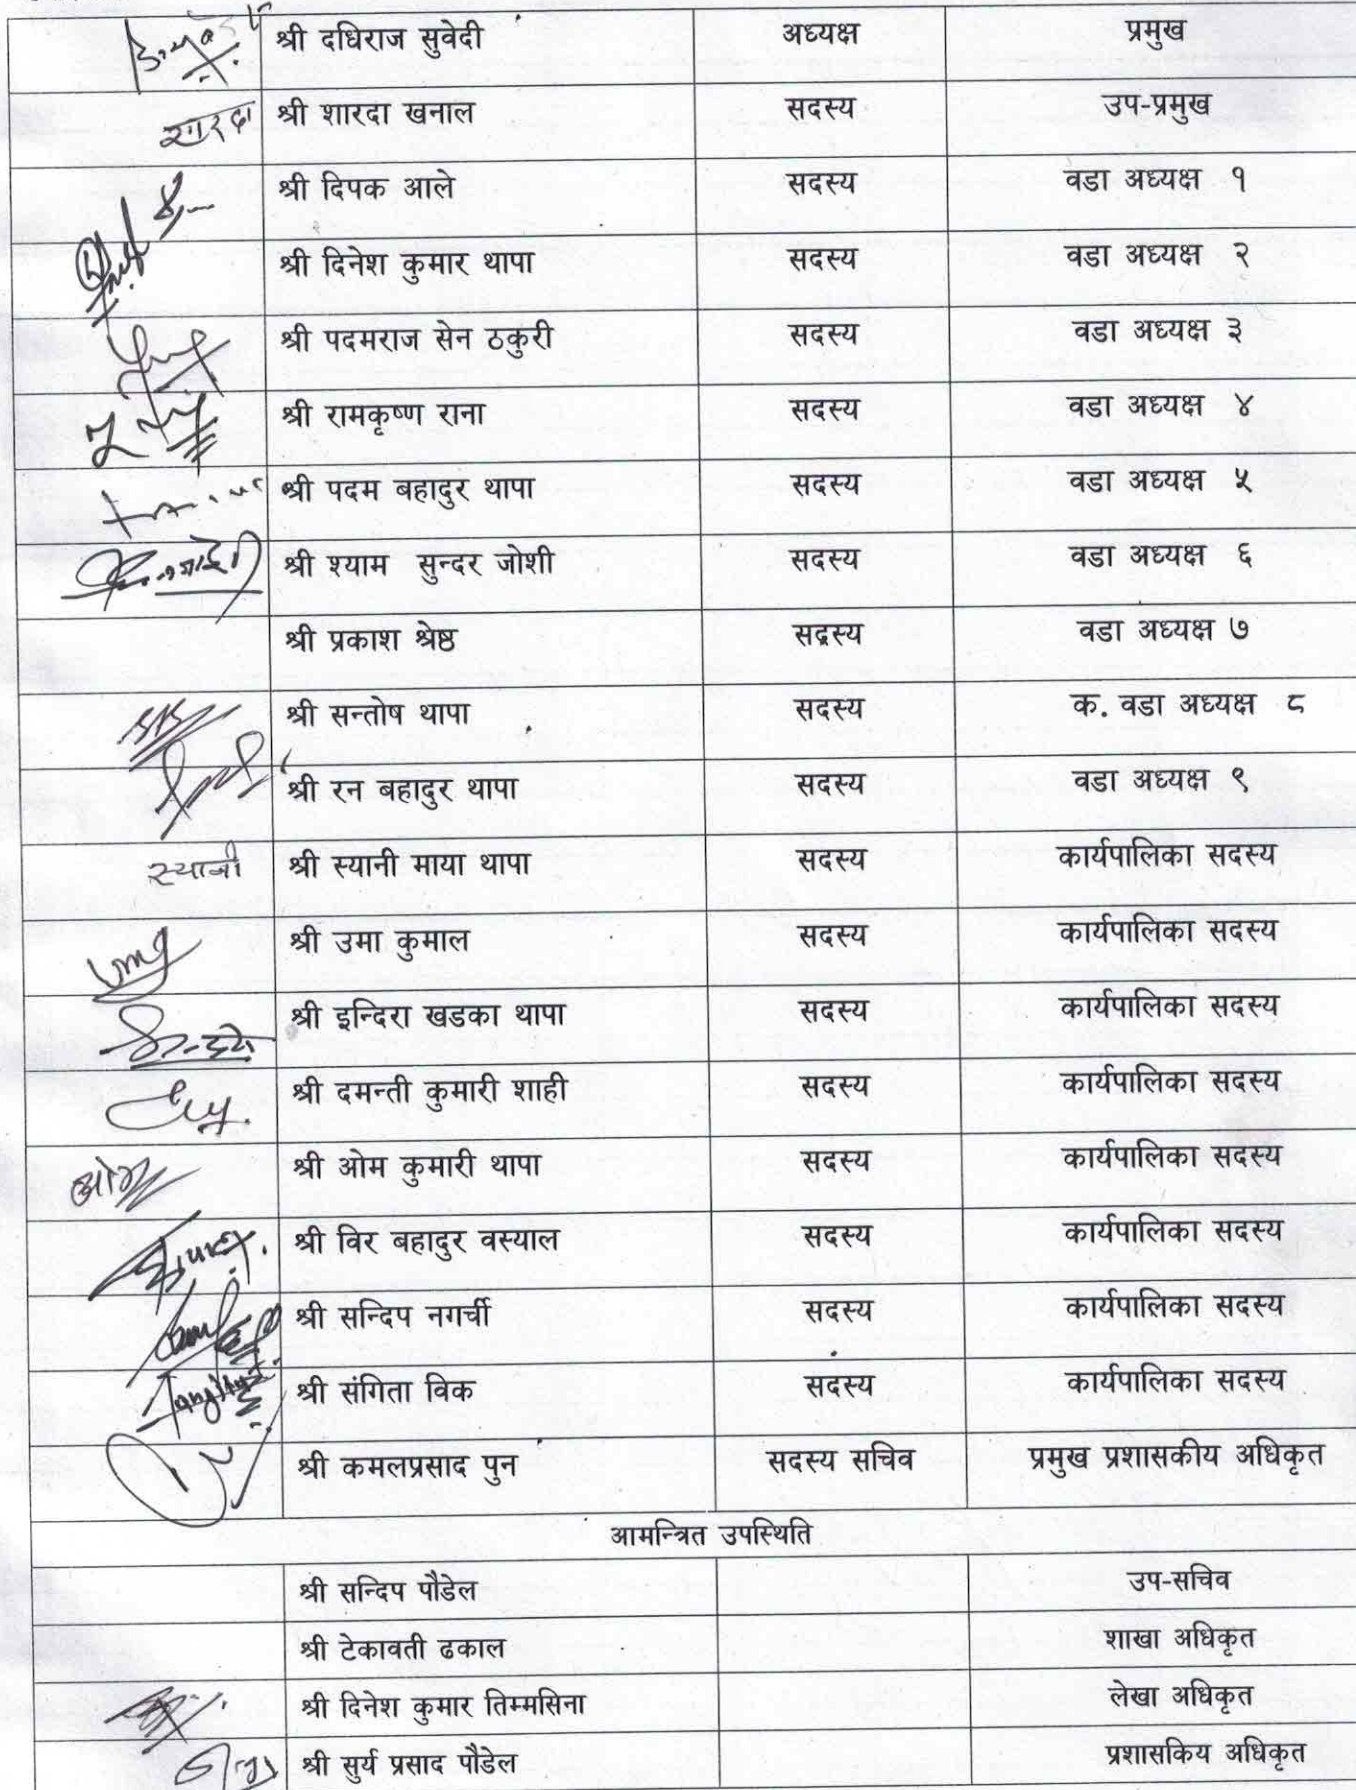 श्री दधिराज सुवेदी अध्यक्ष प्रमुख
शारदा श्री शारदा खनाल सदस्य उप-प्रमुख
श्री दिपक आले सदस्य वडा अध्यक्ष १
श्री दिनेश कुमार थापा सदस्य वडा अध्यक्ष २
श्री पदमराज सेन ठकुरी सदस्य वडा अध्यक्ष ३
श्री रामकृष्ण राना सदस्य वडा अध्यक्ष ४
श्री पदम बहादुर थापा सदस्य वडा अध्यक्ष ५
श्री श्याम सुन्दर जोशी सदस्य वडा अध्यक्ष ६
श्री प्रकाश श्रेष्ठ सदस्य वडा अध्यक्ष ७
श्री सन्तोष थापा सदस्य क. वडा अध्यक्ष ८
श्री रन बहादुर थापा सदस्य वडा अध्यक्ष ९
स्यानी श्री स्यानी माया थापा सदस्य कार्यपालिका सदस्य
श्री उमा कुमाल सदस्य कार्यपालिका सदस्य
श्री इन्दिरा खडका थापा सदस्य कार्यपालिका सदस्य
श्री दमन्ती कुमारी शाही सदस्य कार्यपालिका सदस्य
ओम श्री ओम कुमारी थापा सदस्य कार्यपालिका सदस्य
श्री विर बहादुर वस्याल सदस्य कार्यपालिका सदस्य
श्री सन्दिप नगर्ची सदस्य कार्यपालिका सदस्य
श्री संगिता विक सदस्य कार्यपालिका सदस्य
श्री कमलप्रसाद पुन सदस्य सचिव प्रमुख प्रशासकीय अधिकृत
आमन्त्रित उपस्थिति
श्री सन्दिप पौडेल उप-सचिव
श्री टेकावती ढकाल शाखा अधिकृत
श्री दिनेश कुमार तिम्मसिना लेखा अधिकृत
श्री सुर्य प्रसाद पौडेल प्रशासकिय अधिकृत